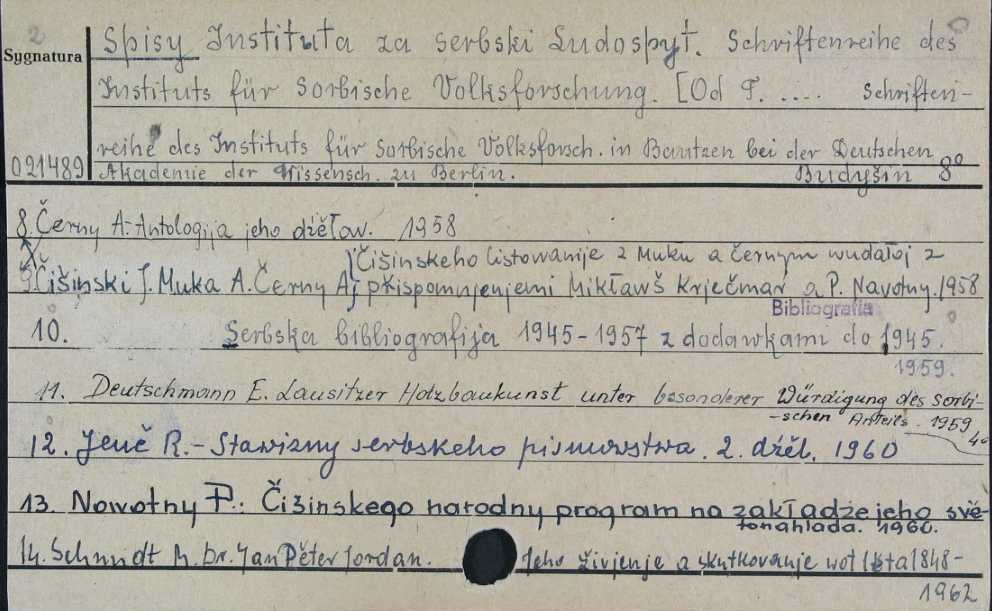 2
Sygnatura
Spisy Instituta za serbski Ludospyt. Schriftenreihe des
Instituts für sorbische Volksforschung. [Od T. .... Schriften-
reihe des Instituts für sorbische Volksforsch. in Bautzen bei der Deutschen
021489 Akademie der Wissensch. zu Berlin. Budyšin 8°
8. Černy A. Antologija jeho dźěłow. 1958
9. Čišinski J. Muka A. Černy A. Čišinskeho listowanije z Muku a Černym wudałoj z
přispomnjenjemi Mikławš Krječmar a P. Nawotny. 1958
Bibliografia
10. Serbska bibliografija 1945-1957 z dodawkami do 1945.
1959.
11. Deutschmann E. Lausitzer Holzbaukunst unter besonderer Würdigung des sorbi-
-schen Anteils. 1959
4°
12. Jenč R. - Stawizny serbskeho pismowstwa. 2. dźěl. 1960
13. Nowotny P.: Čišinskego narodny program na zakładźe jeho swě-
tonahlada. 1960.
14. Schmidt M. Dr. Jan Pěter Jordan. Jeho živjenje a skutkowanje wot lěta 1848-
1962